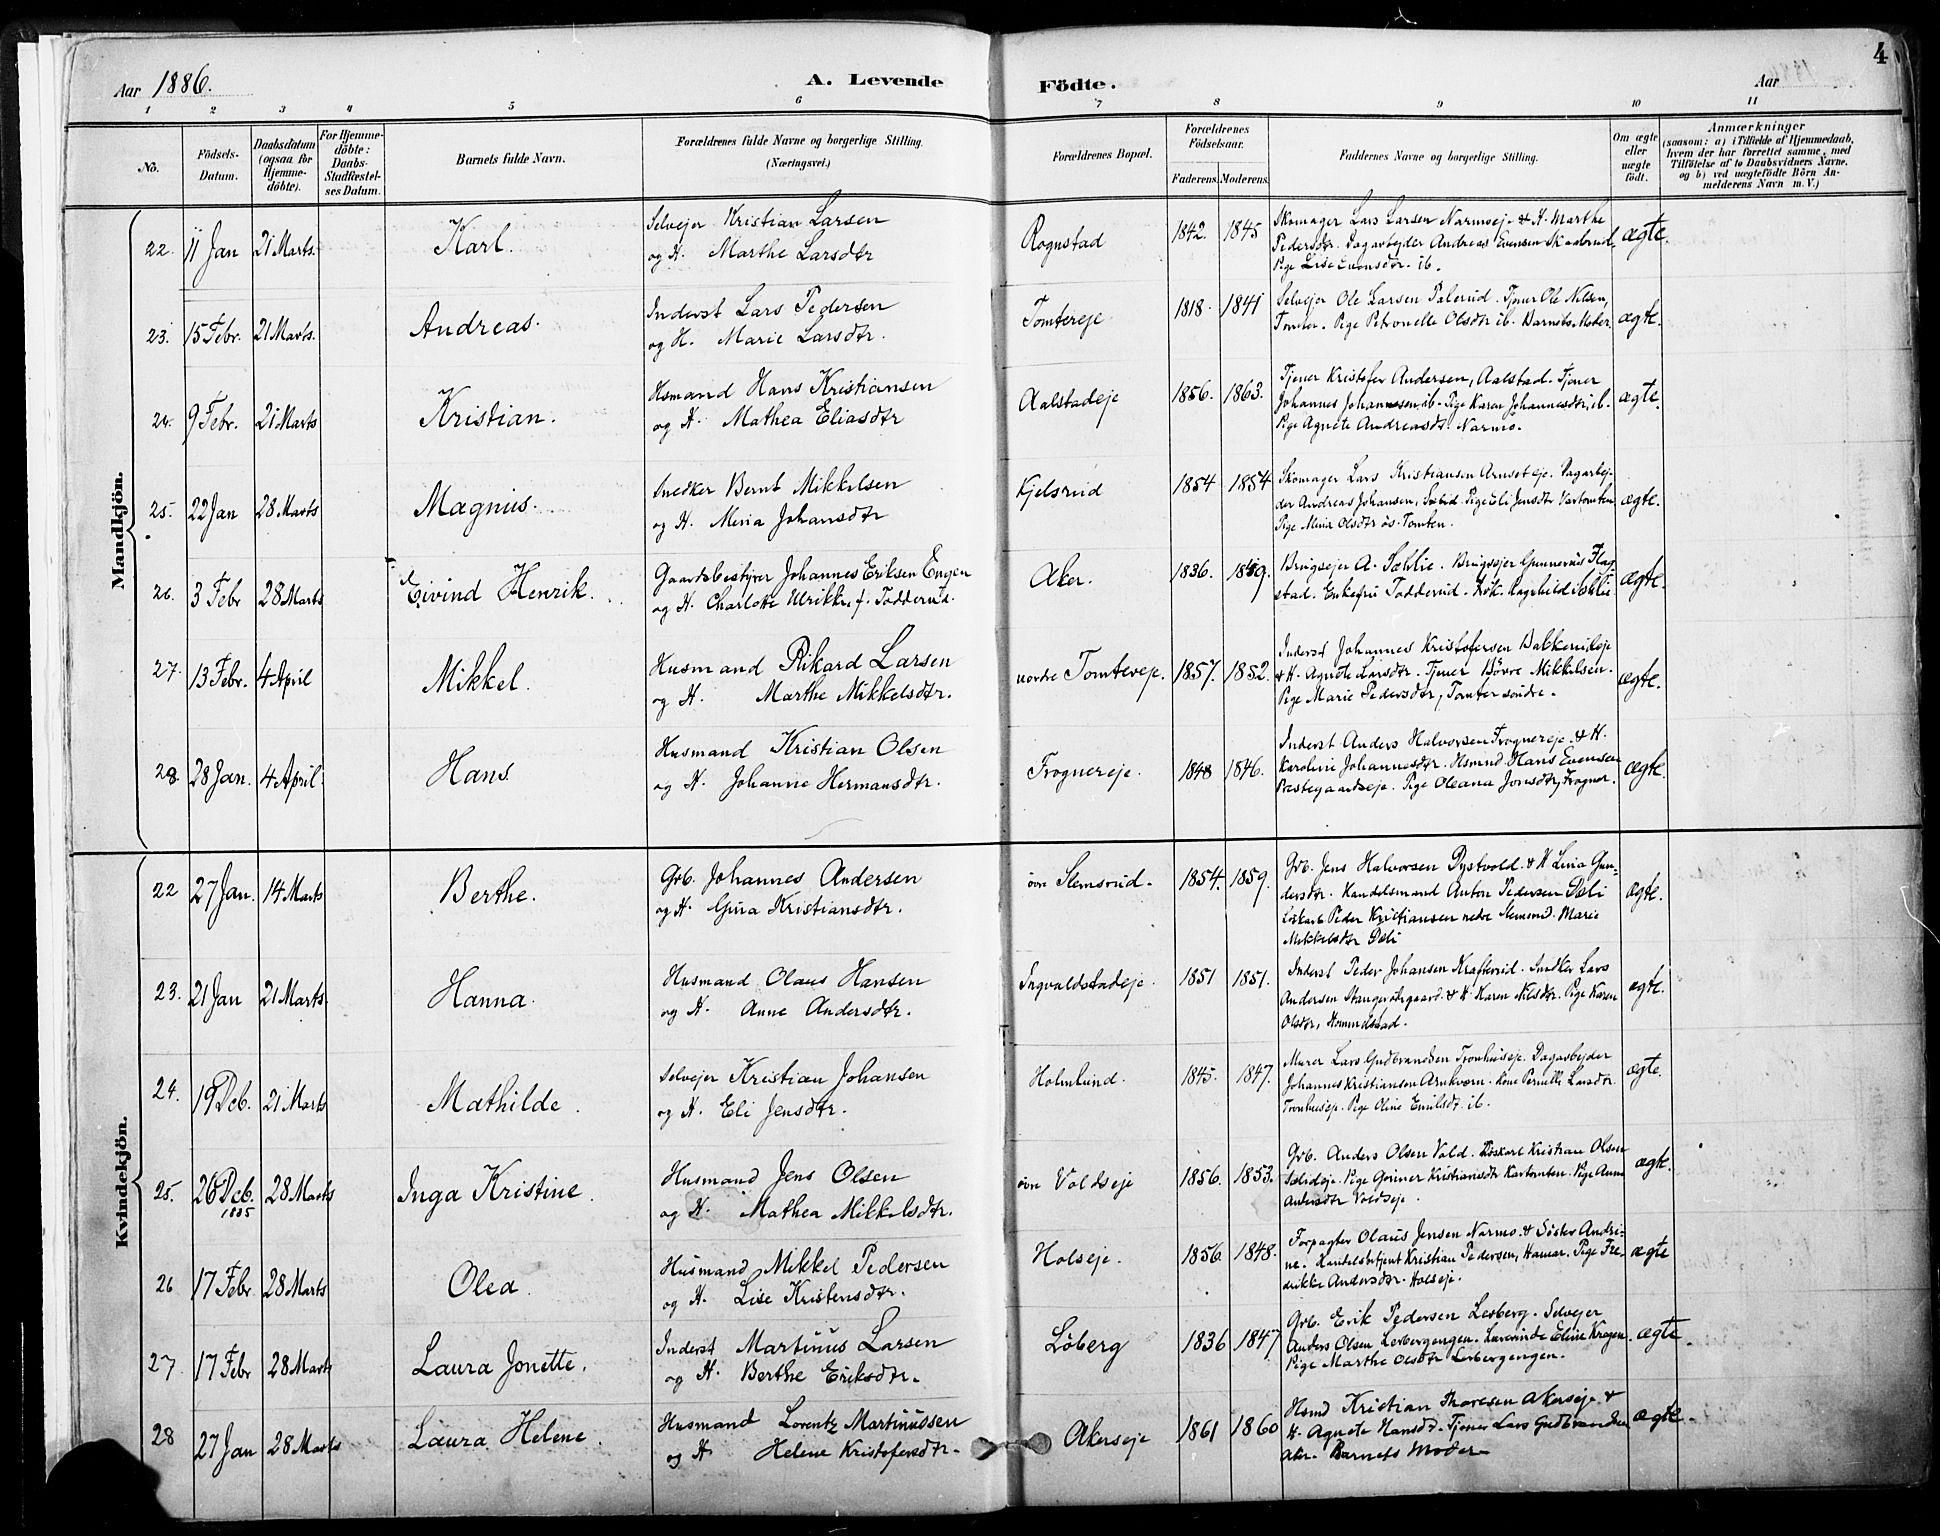 4
Aar 1886.
A. Levende Födte.
Aar
1 2 3 4 5 6 7 8 9 10 11
No.
Födsels-Datum.
Daabsdatum (ogsaa for Hjemme-döbte).
For Hjemme-döbte: Daabs-Stadfæstel-ses Datum.
Barnets fulde Navn.
Forældrenes fulde Navne og borgerlige Stilling.
(Næringsvei.)
Forældrenes Bopæl.
Forældrenes Födselsaar.
Faderens. Moderens.
Faddernes Navne og borgerlige Stilling.
Om ægte eller uægte født.
Anmærkninger
(saasom: a) i Tilfælde af Hjemmedaab, hvem der har forrettet samme, med Tilföielse af to Daabsvidners Navne, og b) ved uægtefödte Börn An-melderens Navn m. V.)
Mandkjön.
22. 11 Jan 21 Marts. Karl. Selvejer Kristian Larsen
og H. Marthe Larsdtr
Rognstad 1842. 1845 Skomager Lars Larsen Narmoeje & H. Marthe
Pedersdtr. Dagarbejder Andreas Evensen Skaabrud.
Pige Lise Evensdtr. ib. ægte.
23. 15 Febr. 21 Marts. Andreas. Inderst Lars Pedersen
og H. Marie Larsdtr.
Tomtereje 1818. 1841 Selvejer Ole Larsen Palerud. Tjener Ole Nilsen,
Tomter. Pige Petronelle Olsdtr ib. Barnets Moder. ægte.
24. 9 Febr. 21 Marts Kristian. Hsmand Hans Kristiansen
og H. Mathea Eliasdtr
Aalstadeje 1856. 1863. Tjener Kristofer Andersen, Aalstad. Tjener
Johannes Johannessen, ib. Pige Karen Johannesdtr, ib.
Pige Agnete Andreasdt. Narmo. ægte.
25. 22 Jan 28 Marts Magnus. Snedker Bernt Mikkelsen
og H. Mina Johansdtr
Kjelsrud 1854 1854 Skomager Lars Kristiansen Arnseteje. Dagarbej-
der Andreas Johansen, Pige Eli Jensdtr
Pige Mina Olsdtr ös. Tomten. ægte.
26. 3 Febr 28 Marts Eivind Henrik. Gaardsbestyrer Johannes Eriksen Engen
og H. Charlotte Ulrikke f. Todderud.
Aker. 1836. 1859. Brugsejer A. Sæhlie. Brugsejer Gunnerius Flag-
stad. Enkefru Todderud. Frök. Ragnhild Sæhlie ægte.
27. 13 Febr. 4 April Mikkel. Husmand Rikard Larsen
og H. Marthe Mikkelsdtr.
nordre Tomtereje. 1857. 1852. Inderst Johannes Kristofersen Bakkerudeje
& H. Agnete Larsdtr. Tjener Börre Mikkelsen.
Pige Marie Pedersdtr, Tomter söndre. ægte.
28. 28 Jan. 4 April. Hans Husmand Kristian Olsen
og H. Johanne Hermansdtr.
Frognereje. 1848 1846. Inderst Anders Halvorsen Frognereje & H.
Karoline Johannesdtr. Hsmnd. Hans Evensen
Præstegaardseje. Pige Oleana Jonsdtr, Frogner. ægte.
Kvindekjön.
22 27 Jan. 14 Marts Berthe. Grb. Johannes Andersen
og H. Gina Kristiansdtr.
övre Slemsrud. 1854. 1859. Grb. Jens Halvorsen Dystvold & H Lina Gun-
dersdtr. Handelsmand Anton Pedersen Dæli
Löskarl Peder Kristiansen nedre Slemsrud. Marie
Mikkelsdtr Dæli ægte.
23. 21 Jan 21 Marts Hanna. Husmand Olaus Hansen
og H. Anne Andersdtr.
Ingvaldstadeje. 1851 1851. Inderst Peder Johansen Krafterud. Snedker Lars
Andersen & H. Karen Nilsdtr. Pige Karen
Olsdtr, Hommelstad. ægte.
24. 19 Dcb. 21 Marts Mathilde. Selvejer Kristian Johansen
og H. Eli Jensdtr.
Holmlund. 1845. 1847. Murer Lars Gudbrandsen Tronhuseje. Dagarbejder
Johannes Kristiansen Arnkværn. Kone Pernille Larsdtr
Tronhuseje. Pige Oline Emilsdt. ib. ægte.
25. 26 Dcb. 1885 28 Marts Inga Kristine. Husmand Jens Olsen
og H. Mathea Mikkelsdtr.
övre Voldseje 1856. 1853. Grb. Anders Olsen Vold. Löskarl Kristian Olsen
Sælideje. Pige Gunner Kristiansdtr Pige Anne
Andersdtr Voldseje. ægte.
26 17 Febr. 28 Marts Olea. Husmand Mikkel Pedersen
og H. Lise Kristensdtr.
Holseje. 1856. 1848. Forpagter Olaus Jensen Narmo & Söster Andri-
ne. Handelsbetjent Kristian Pedersen, Hamar. Pige Fre-
drikke Andersdtr. Holseje. ægte
27. 17 Febr 28 Marts Laura Jonette. Inderst Martinus Larsen
og H. Berthe Eriksdtr.
Löberg 1836 1847 Grb. Erik Pedersen Lerberg. Selvejer
Anders Olsen Lerbergengen. Lærerinde Eline Kragen.
Pige Marthe Olsdtr Lerbergengen. ægte
28 27 Jan 28 Marts Laura Helene. Husmand Lorentz Martinussen
og H Helene Kristofersdtr.
Akerseje 1861 1860 Hsmd Kristian Thoresen Akerseje &
H. Agnete Hansdt. Tjener Lars Gudbrandsen
Aker. Barnets Moder. ægte.